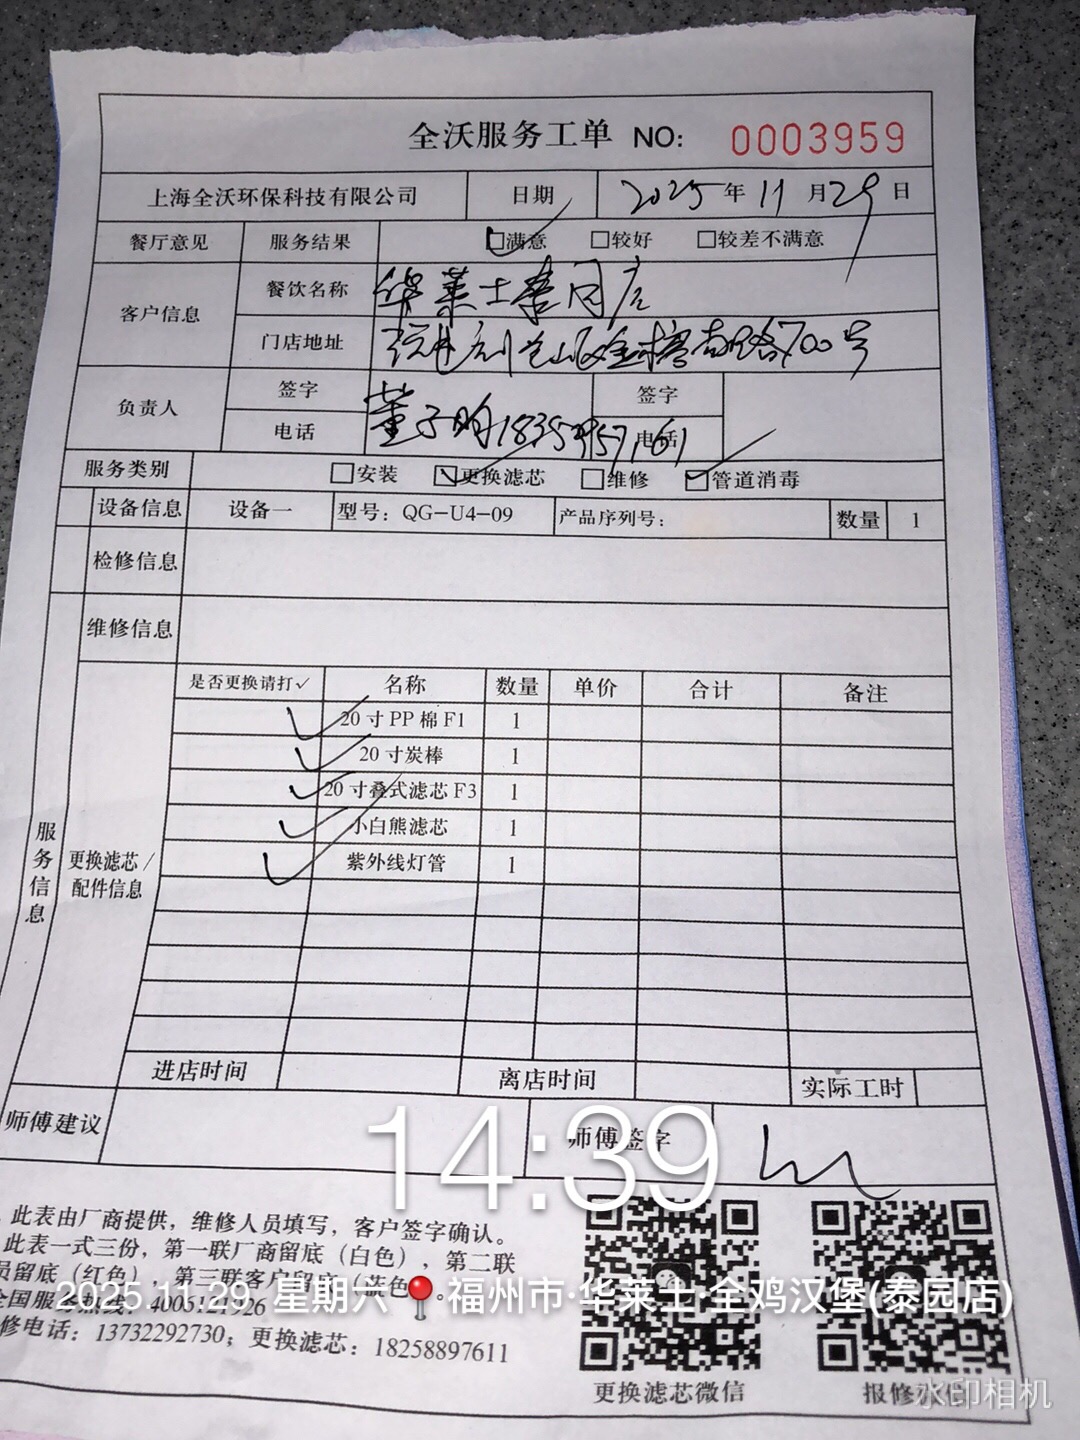 全沃服务工单 NO: 0003959
上海全沃环保科技有限公司 日期 2025年11月29日
餐厅意见 服务结果 ☑满意 □较好 □较差不满意
客户信息 餐饮名称 华莱士泰园店
门店地址 仓山区 南路700号
负责人 签字 董子昀 签字
电话 电话
服务类别 □安装 ☑更换滤芯 □维修 ☑管道消毒
设备信息 设备一 型号：QG-U4-09 产品序列号： 数量 1
检修信息
维修信息
服务信息
更换滤芯/配件信息
是否更换请打✓ 名称 数量 单价 合计 备注
✓ 20寸PP棉F1 1
✓ 20寸炭棒 1
✓ 20寸叠式滤芯F3 1
✓ 小白熊滤芯 1
✓ 紫外线灯管 1
进店时间 离店时间 实际工时
师傅建议 师傅签字
14:39
此表由厂商提供，维修人员填写，客户签字确认。
此表一式三份，第一联厂商留底（白色），第二联
员留底（红色），第三联客户留底（蓝色）。
全国服务热线：4006121926
修电话：13732292730；更换滤芯：18258897611
2025.11.29 星期六 福州市·华莱士·全鸡汉堡(泰园店)
更换滤芯微信 报修微信
水印相机